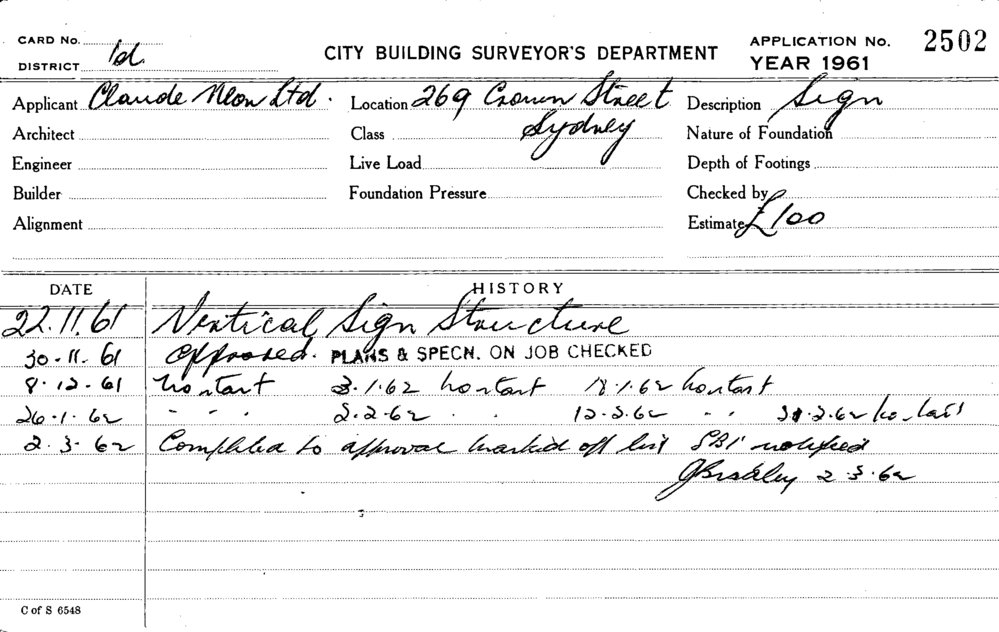 CARD No.
DISTRICT 1d.
CITY BUILDING SURVEYOR'S DEPARTMENT
APPLICATION No. 2502
YEAR 1961
Applicant Claude Neon Ltd. Location 269 Crown Street Description Sign
Architect Class Sydney Nature of Foundation
Engineer Live Load Depth of Footings
Builder Foundation Pressure Checked by
Alignment Estimate £100
DATE HISTORY
22.11.61 Vertical Sign Structure
30-11-61 Approved. PLANS & SPECN. ON JOB CHECKED
8-12-61 No start 3.1.62 No start 18.1.62 No start
26-1-62 " " 2-2-62 " " 12-2-62 " "
2.3.62 Completed to approval marked off list notified
2.3.62
C of S 6548